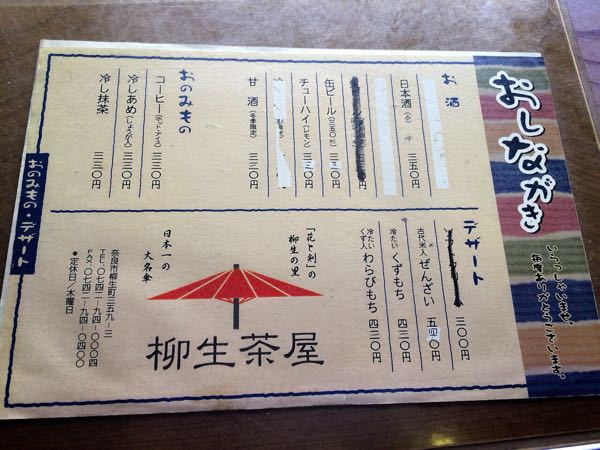 おしながき
いらっしゃいませ。
毎度ありがとうございます。
お酒
日本酒(小) 三五〇円
缶ビール(三五〇ml) 三三〇円
チューハイ(レモン) 三三〇円
甘酒(冬季限定) 三三〇円
おのみもの
コーヒー(ホット・アイス) 三三〇円
冷しあめ(しょうが入) 三三〇円
冷し抹茶 三三〇円
デザート
三〇〇円
古代米入 ぜんざい 五四〇円
冷たい くずもち 四三〇円
冷たい くず入 わらびもち 四三〇円
「花と剣」の
柳生の里
日本一の
大名傘
柳生茶屋
奈良市柳生町三五九-三
TEL.〇七四二-九四-〇〇〇四
FAX.〇七四二-九四-〇四〇〇
●定休日/木曜日
おのみもの・デザート